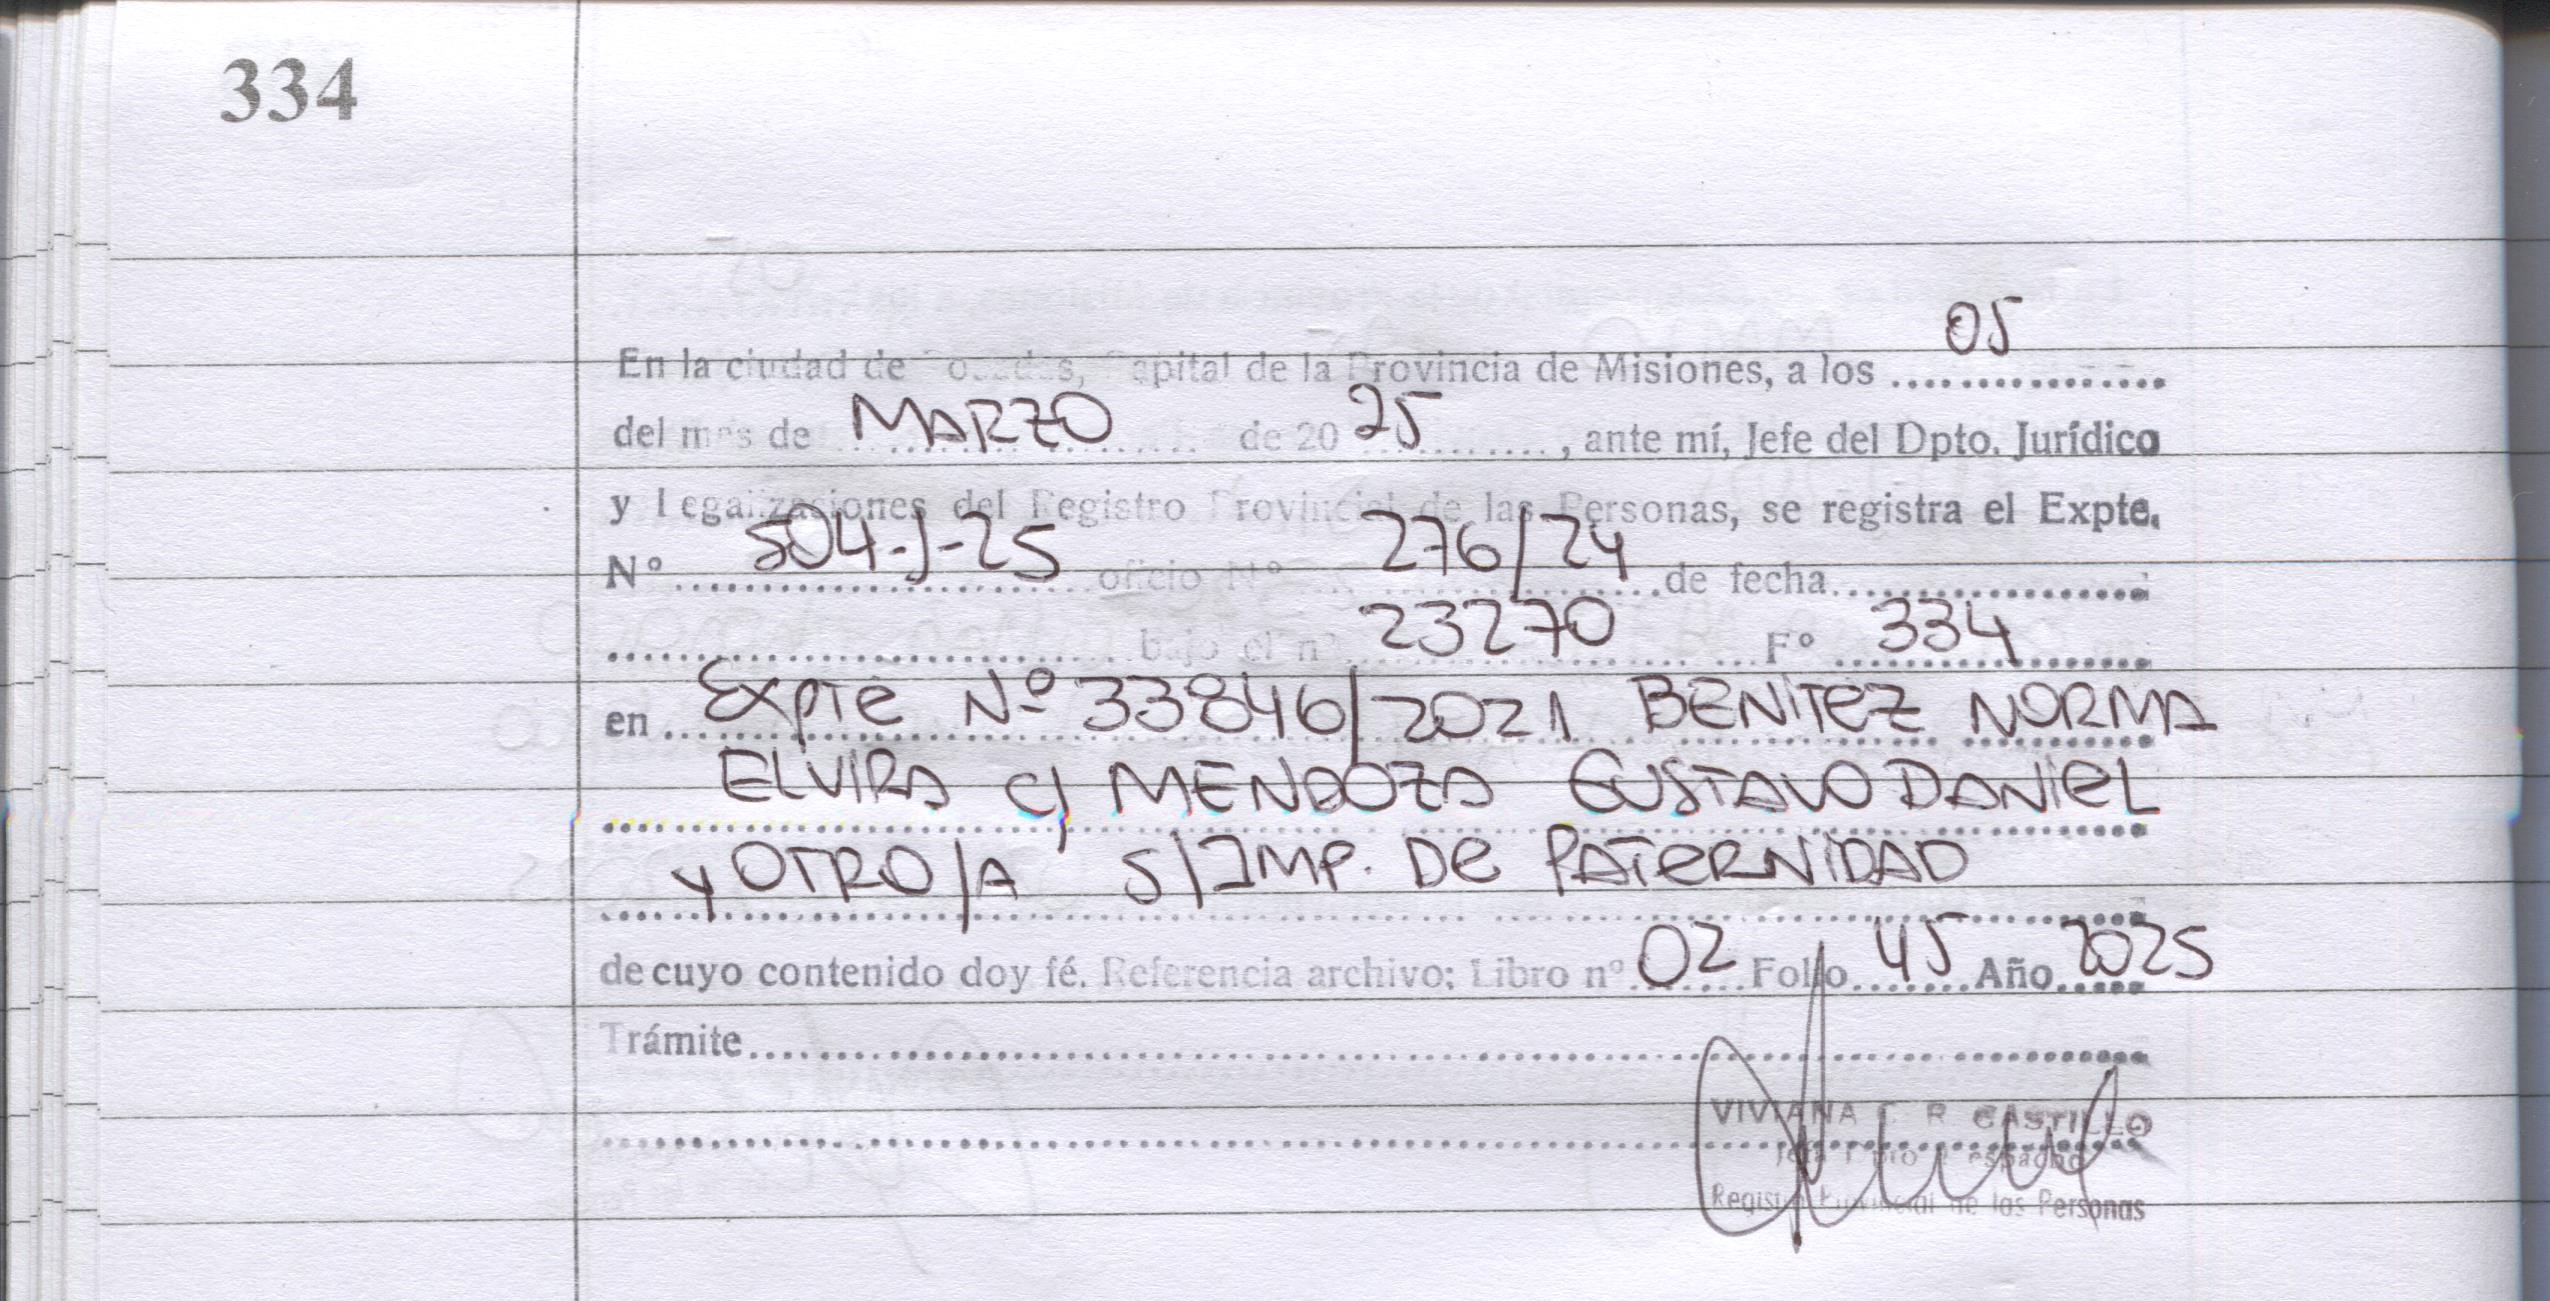 334
En la ciudad de Posadas, Capital de la Provincia de Misiones, a los 05
del mes de MARZO de 20 25, ante mí, Jefe del Dpto. Jurídico
y Legalizaciones del Registro Provincial de las Personas, se registra el Expte.
Nº 504-J-25 oficio Nº 276/24 de fecha
bajo el nº 23270 Fº 334
en Expte Nº 33846/2021 BENITEZ NORMA
ELVIRA c/ MENDOZA GUSTAVO DANIEL
y OTRO/A S/IMP. DE PATERNIDAD
de cuyo contenido doy fé. Referencia archivo: Libro nº 02 Folio 45 Año 2025
Trámite
VIVIANA R. CASTILLO
Despacho
Registro Provincial de las Personas